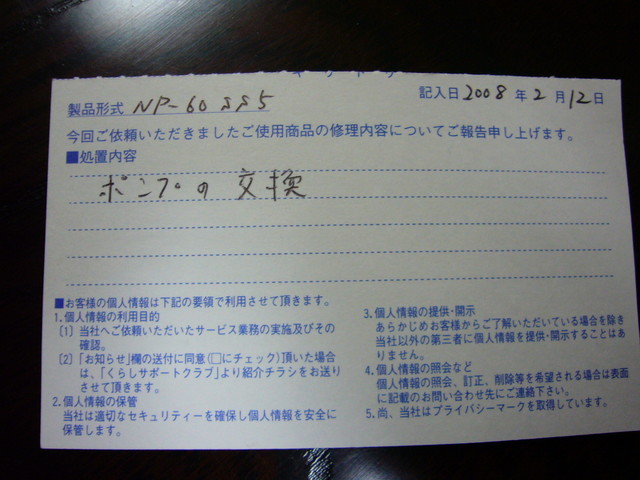 製品形式 NP-60SS5
記入日 2008 年 2 月 12 日
今回ご依頼いただきましたご使用商品の修理内容についてご報告申し上げます。
■処置内容
ポンプの交換
■お客様の個人情報は下記の要領で利用させて頂きます。
1.個人情報の利用目的
[1] 当社へご依頼いただいたサービス業務の実施及びその
確認。
[2]「お知らせ」欄の送付に同意(□にチェック)頂いた場合
は、「くらしサポートクラブ」より紹介チラシをお送り
させて頂きます。
2.個人情報の保管
当社は適切なセキュリティーを確保し個人情報を安全に
保管します。
3.個人情報の提供・開示
あらかじめお客様からご了解いただいている場合を除き
当社以外の第三者に個人情報を提供・開示することはあ
りません。
4.個人情報の照会など
個人情報の照会、訂正、削除等を希望される場合は表面
に記載のお問い合わせ先にご連絡下さい。
5.尚、当社はプライバシーマークを取得しています。